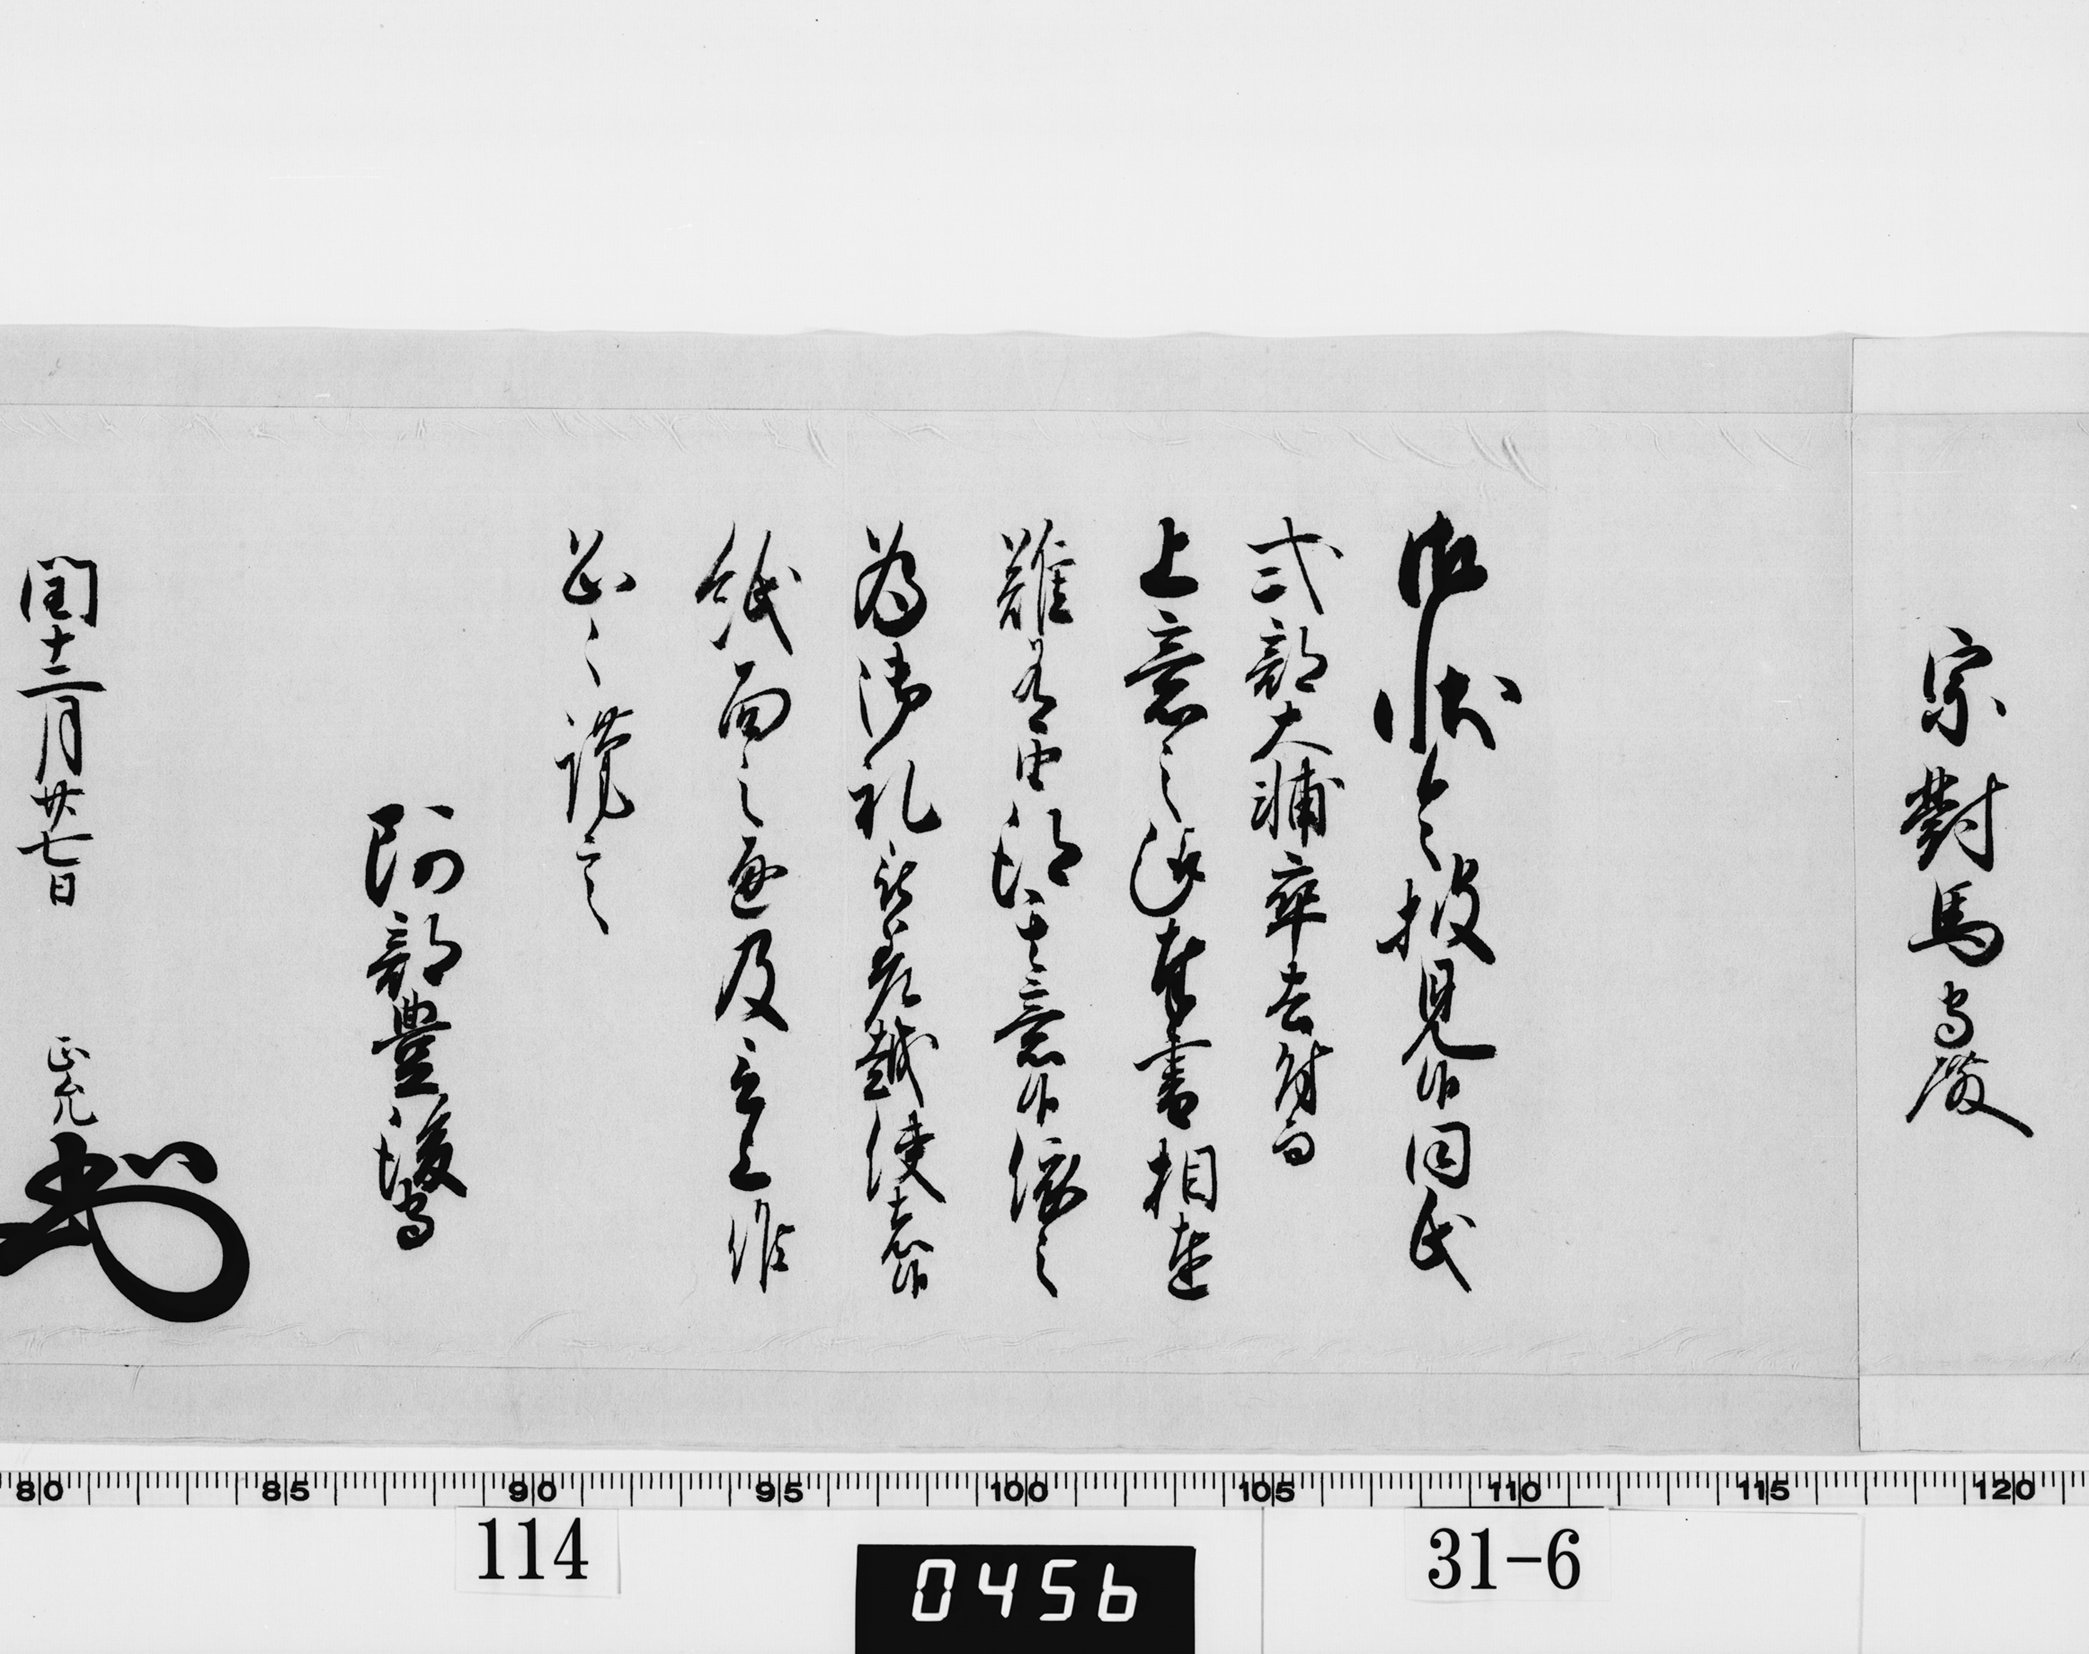 宗對馬守殿
御状令披見候同氏
式部大輔卒去付而
上意之趣奉書相達
難有由得其意候依之
為御礼被差越使者候
紙面之通及言上候
恐々謹言
阿部豊後守
閏十二月廿七日 正允
80 85 90 95 100 105 110 115 120
114 0456 31-6